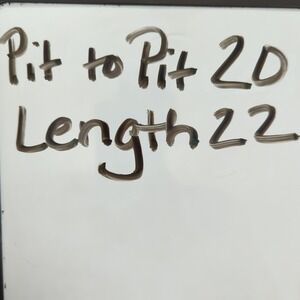 Pit to Pit 20
Length 22